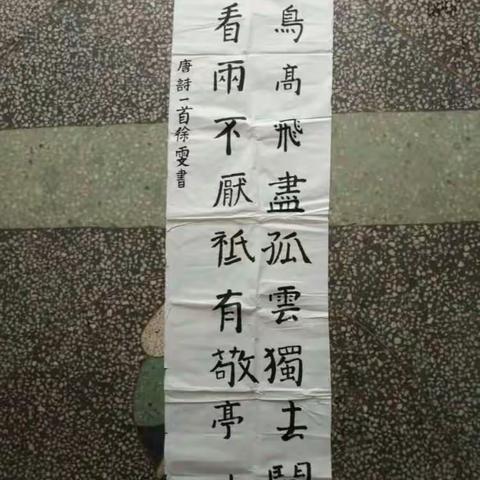 鳥髙飛盡孤雲獨去
看兩不厭祗有敬亭
唐詩一首徐雯書